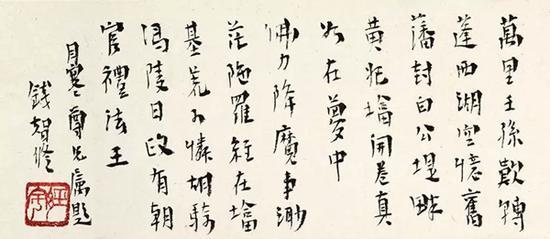 萬里王孫歎轉
蓬西湖空憶舊
藩封白公堤畔
黄妃墖開卷真
如在夢中
佛力降魔事渺
茫陁羅經在墖
基荒可憐胡騎
馮陵日政有朝
官禮法王
月尊兄屬題
錢智修